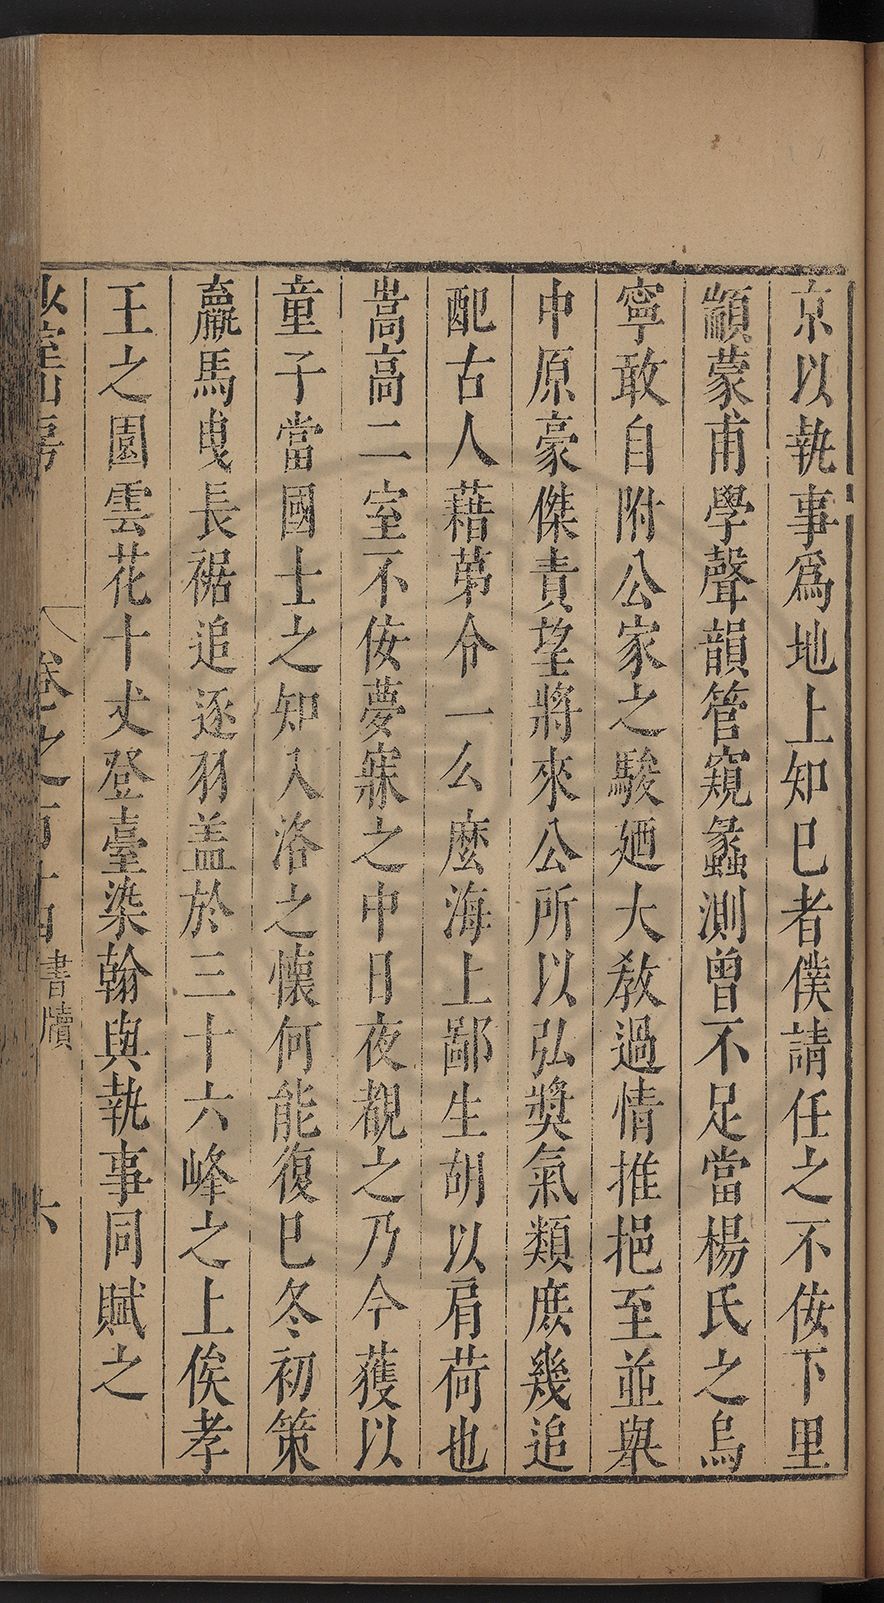 京以執事爲地上知巳者僕請任之不佞下里
顓蒙甫學聲韻管窺蠡測曾不足當楊氏之烏
寧敢自附公家之駿廼大教過情推挹至並舉
中原豪傑責望將來公所以弘奬氣類庻幾追
配古人藉第令一么麼海上鄙生胡以肩荷也
嵩高二室不佞夢寐之中日夜覩之乃今獲以
童子當國士之知入洛之懷何能復巳冬初策
羸馬曵長裾追逐羽盖於三十六峰之上俟孝
王之園雲花十丈登臺染翰與執事同賦之
室山房 卷之百十 書牘 六